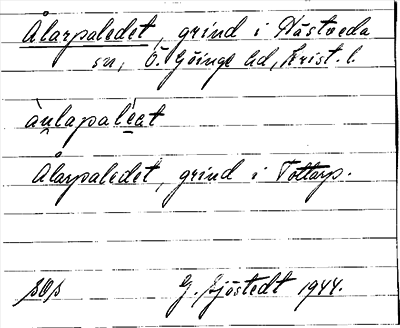 Ålarpaledet, grind i Hästveda
sn, Ö. Göinge hd, Krist. l.
Ålarpaledet, grind i Toltarp.
G. Sjöstedt 1944.